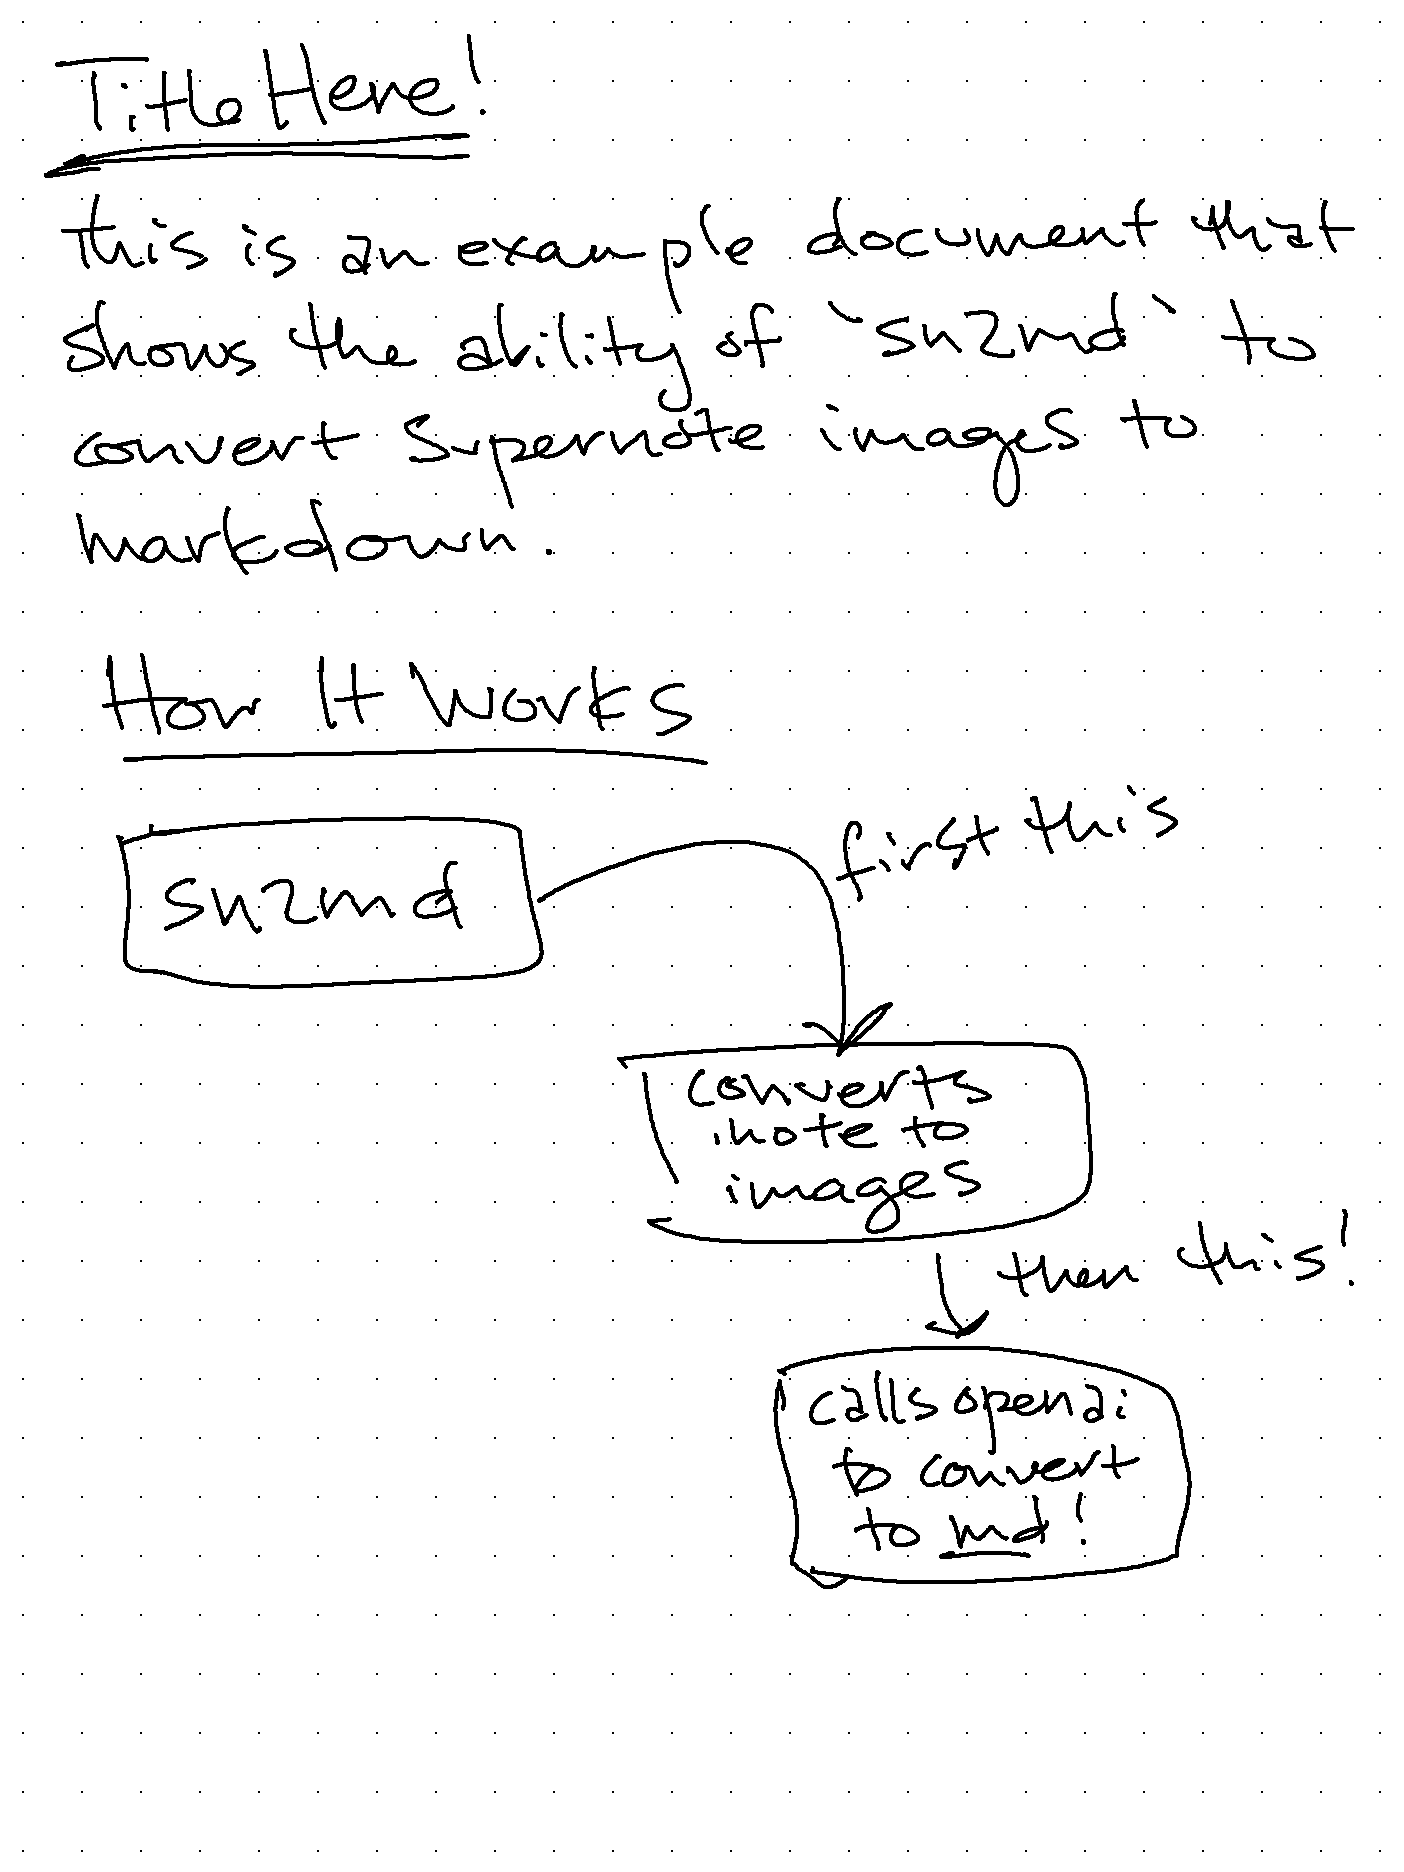 Title Here!
This is an example document that
shows the ability of `sn2md` to
convert Supernote images to
markdown.
How It Works
sn2md
first this
converts
.note to
images
then this!
calls openai
to convert
to md!